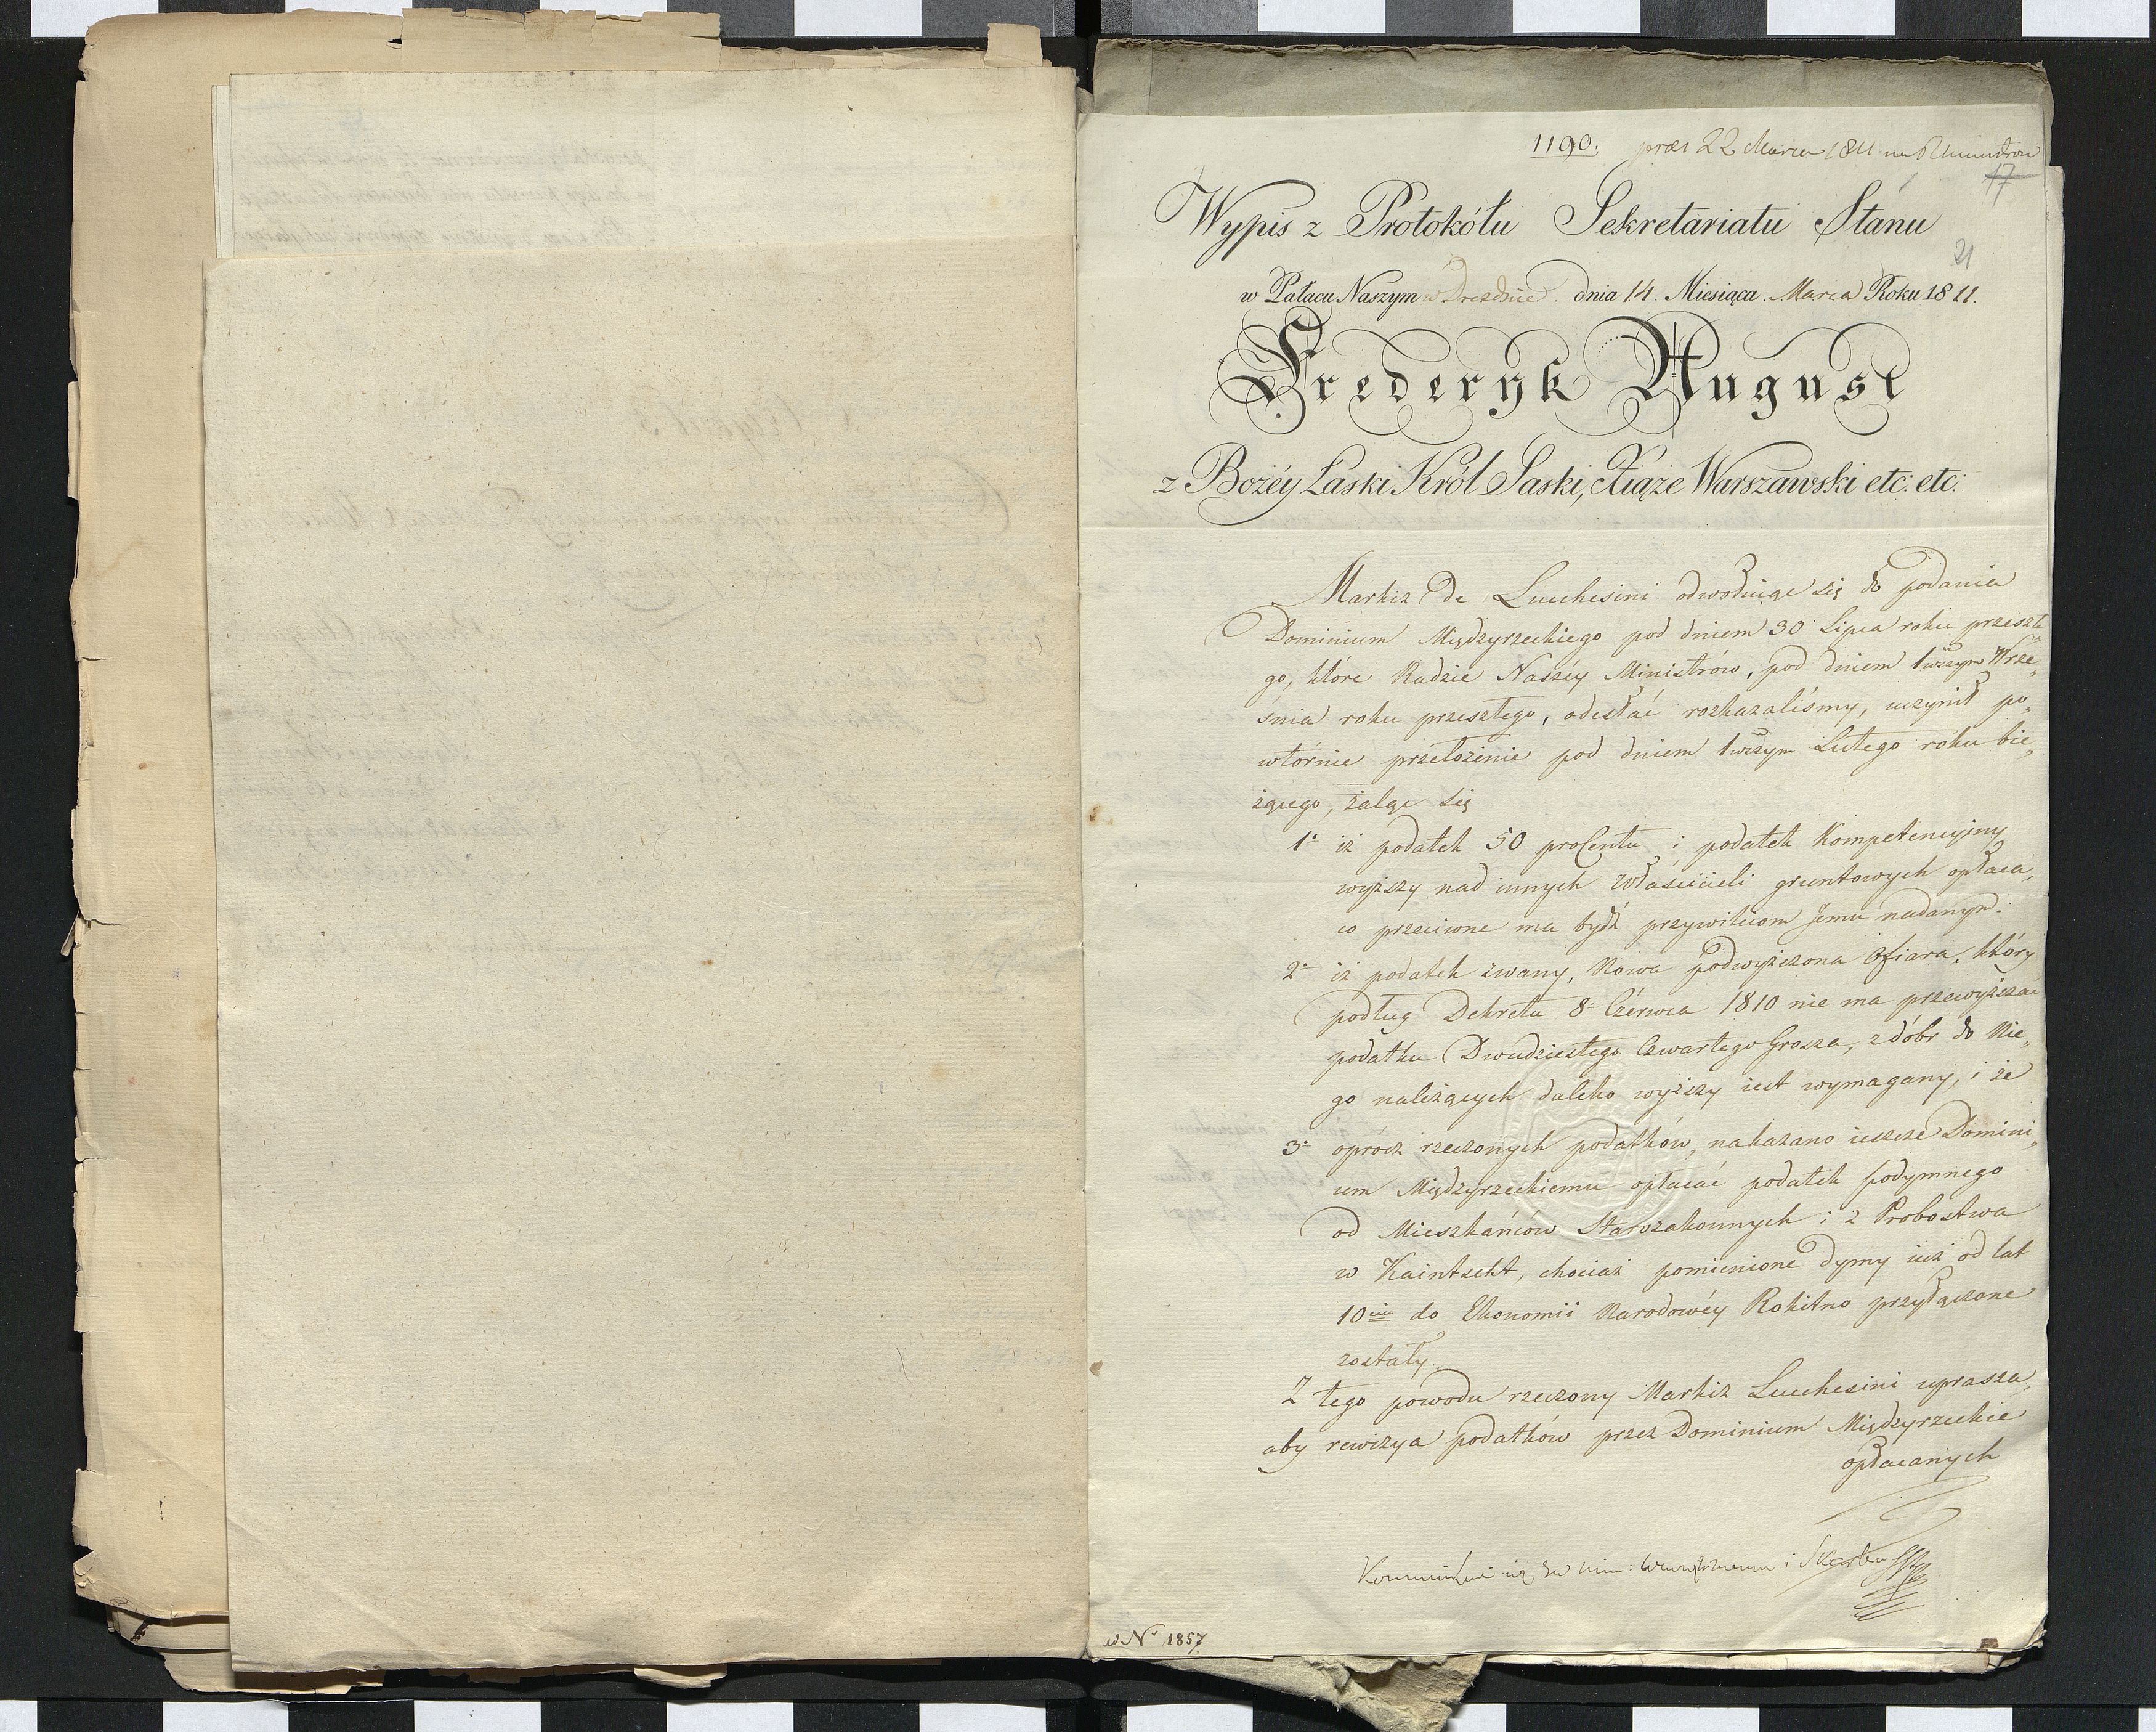 1190. præs 22 Marca 1811
17
Wypis z Protokółu Sekretariatu Stanu
21
w Pałacu Naszym w Dreznie dnia 14. Miesiąca Marca Roku 1811.
Frederyk August
z Bożéy Łaski Król Saski, Xiąże Warszawski etc: etc:
Markiz De Lucchesini odwołuiąc się do podania
Dominium Międzyrzeckiego pod dniem 30 Lipca roku przeszłe
go, które Radzie Naszéy Ministrów, pod dniem 1wszym Wrze„
śnia roku przeszłego, odesłać rozkazaliśmy, uczynił po„
wtórnie przełożenie pod dniem 1wszym Lutego roku bie„
żącego, żaląc się
1° iż podatek 50 proCentu i podatek Kompetencyiny
wyższy nad innych właścicieli gruntowych opłaca,
co przeciwne ma bydź przywileiom Jemu nadanym.
2° iż podatek zwany, Nowa podwyższona Ofiara, który
podług Dekretu 8. Czérwca 1810 nie ma przewyższać
podatku Dwudziestego Czwartego Grosza, z dóbr do Nie„
go należących daleko wyższy iest wymagany, i że
3° oprócz rzeczonych podatków, nakazano ieszcze Domini„
um Międzyrzeckiemu opłacać podatek podymnego
od Mieszkańców Starozakonnych i z Probostwa
w Kaintscht, chociaż pomienione Dymy iuż od lat
10ciu do Ekonomii Narodowéy Rokitno przyłączone
zostały.
Z tego powodu rzeczony Markiz Lucchesini uprasza,
aby rewizya podatków przez Dominium Międzyrzeckie
opłacanych
w N° 1857